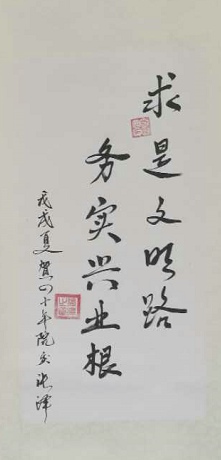 求是文明路
务实兴业根
戊戌夏贺四十年院庆张泽